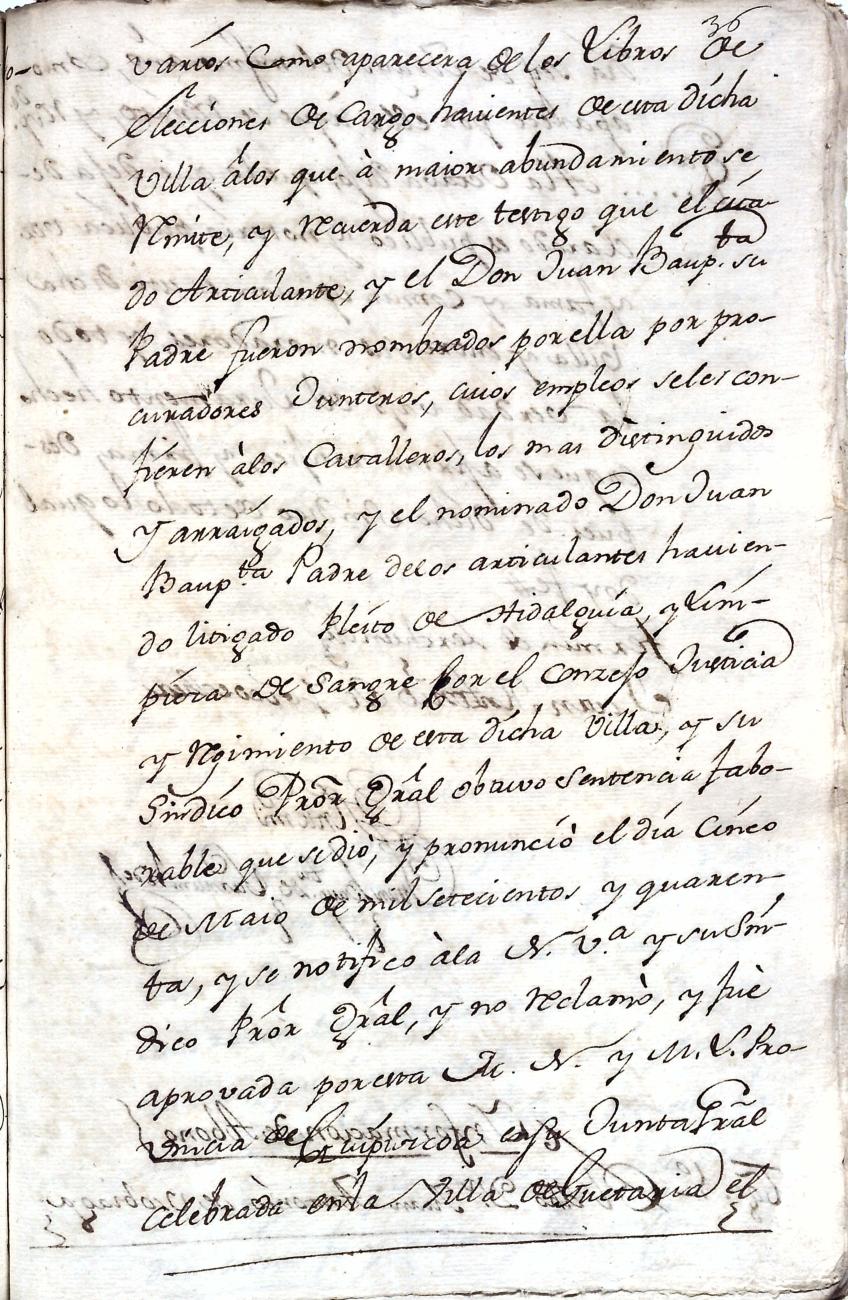 36
varios como aparecera de los Libros de
Elecciones de Cargo havientes de esta dicha
Villa álos que à maior abundamiento se
Rmite, y Recuerda este testigo que el cita-
do Articulante, y el Don Juan Baup.ta su
Padre fueron nombrados por ella por pro-
curadores Junteros, cuios empleos seles con-
fieren àlos Cavalleros, los mas distinguidos
y arraigados, y el nominado Don Juan
Baup.ta Padre delos articulantes havien-
do litigado Pleito de Hidalguia, y Lim-
pieza de Sangre por el Conzejo Justicia
y Rgimiento de esta dicha Villa, y su
Sindico Prõr Grãl obtuvo Sentencia fabo-
rable que se dio, y pronunciò el dia Cinco
de Maio de mil setecientos y quaren-
ta, y se notificò àla N. V.a y su Sin-
dico Prõr Grãl, y no Reclamò, y fuè
aprovada por esta M. N. y M. L. Pro-
vincia de Guipuzcoa en su Junta Grãl
Celebrada en la Villa de Guetaria el